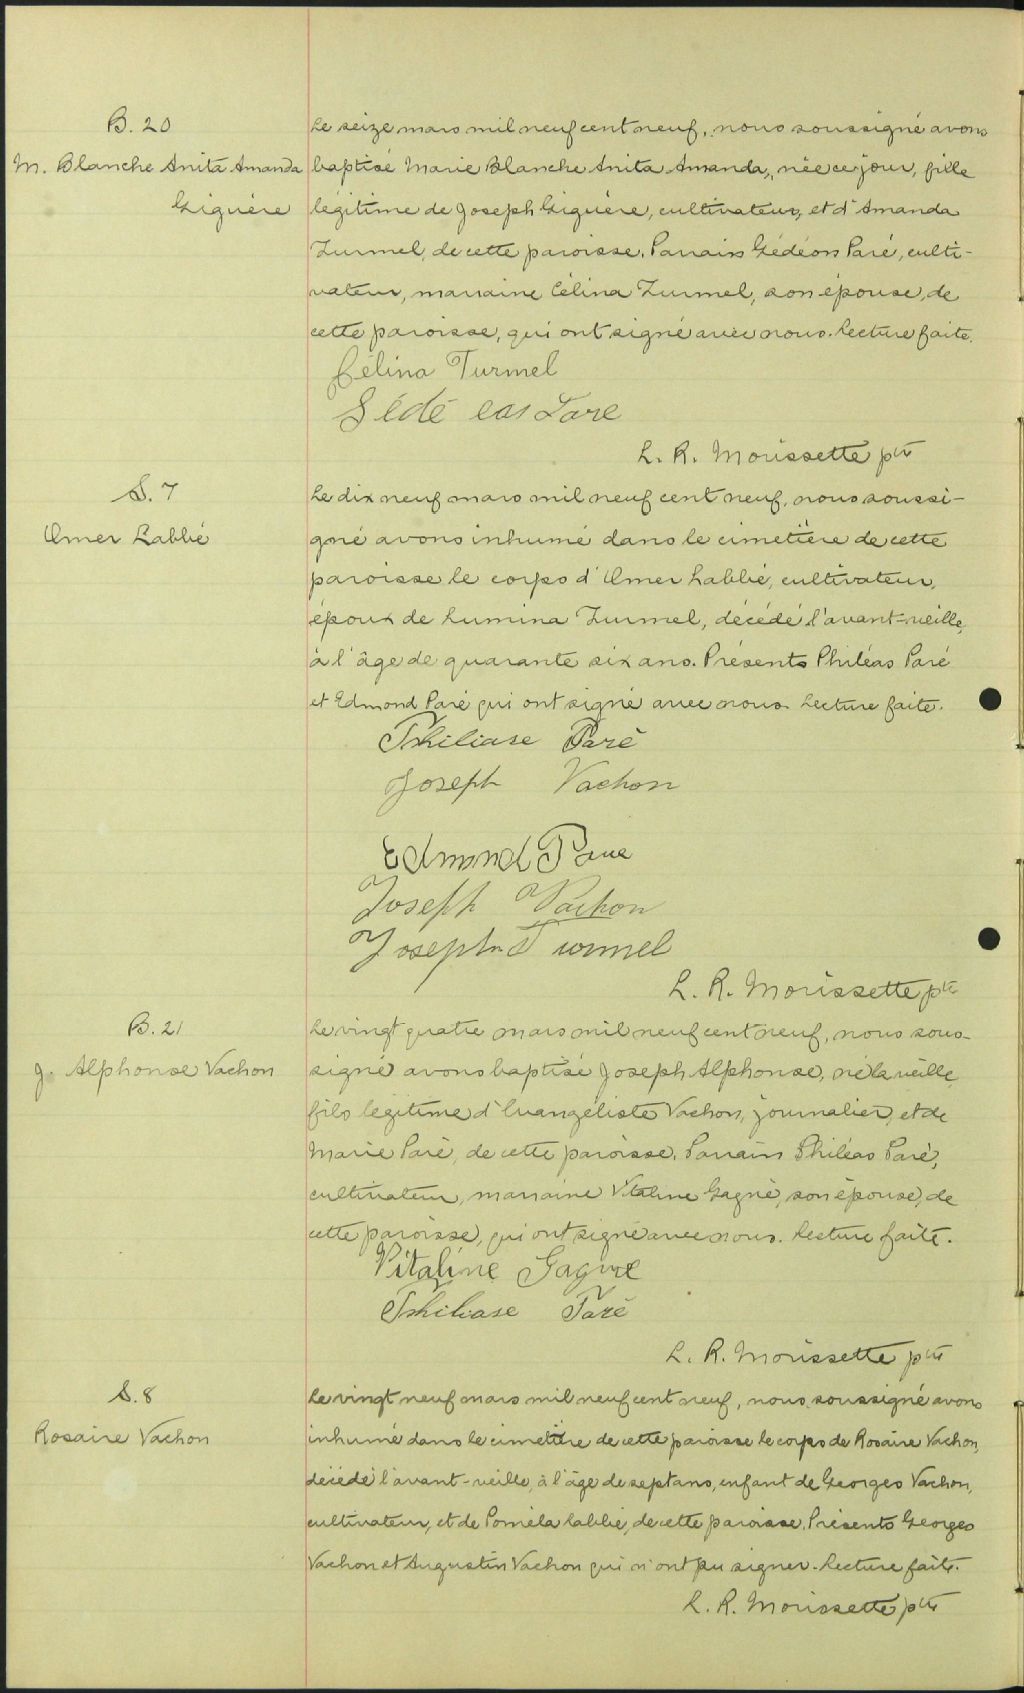 B. 20
M. Blanche Anita Amanda
Giguère
Le seize mars mil neuf cent neuf, nous soussigné avons
baptisé Marie Blanche Anita Amanda, née ce jour, fille
légitime de Joseph Giguère, cultivateur, et d'Amanda
Turmel, de cette paroisse. Parrain Gédéon Paré, culti-
vateur, marraine Célina Turmel, son épouse, de
cette paroisse, qui ont signé avec nous. Lecture faite.
Célina Turmel
L. R. Morissette ptre
S. 7
Omer Labbé
Le dix neuf mars mil neuf cent neuf, nous soussi-
gné avons inhumé dans le cimetière de cette
paroisse le corps d'Omer Labbé, cultivateur,
époux de Lumina Turmel, décédé l'avant-veille,
à l'âge de quarante six ans. Présents Philéas Paré
et Edmond Paré qui ont signé avec nous. Lecture faite.
Philiase Paré
Joseph Vachon
Edmond Pare
Joseph Vachon
Joseph Turmel
L. R. Morissette ptre
B. 21
J. Alphonse Vachon
Le vingt quatre mars mil neuf cent neuf, nous sous-
signé avons baptisé Joseph Alphonse, né la veille,
fils légitime d'Evangéliste Vachon, journalier, et de
Marie Paré, de cette paroisse. Parrain Philéas Paré,
cultivateur, marraine Vitaline Gagné, son épouse, de
cette paroisse, qui ont signé avec nous. Lecture faite.
Vitaline Gagne
Philiase Paré
L. R. Morissette ptre
S. 8
Rosaire Vachon
Le vingt neuf mars mil neuf cent neuf, nous soussigné avons
inhumé dans le cimetière de cette paroisse le corps de Rosaire Vachon,
décédé l'avant-veille, à l'âge de sept ans, enfant de Georges Vachon,
cultivateur, et de Poméla Labbé, de cette paroisse. Présents Georges
Vachon et Augustin Vachon qui n'ont pu signer. Lecture faite.
L. R. Morissette ptre